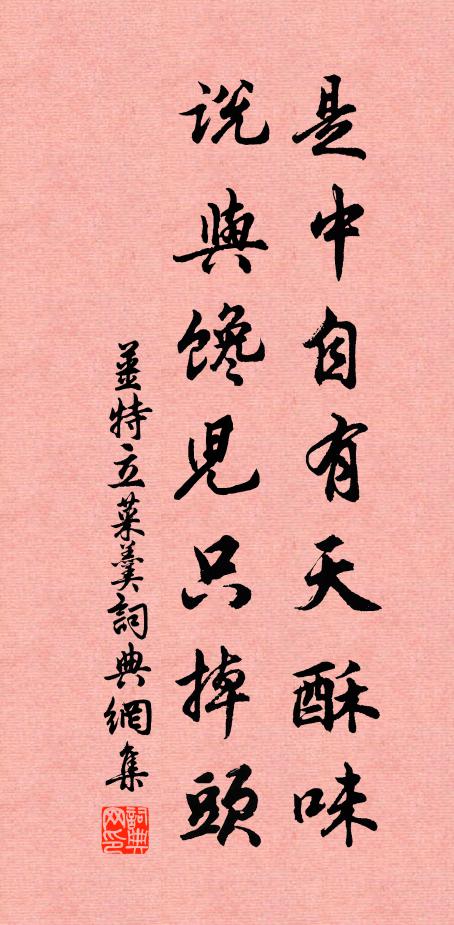 是中自有天酥味
説與饞児只掉頭
姜特立菜羹詞典網集
詞典網印